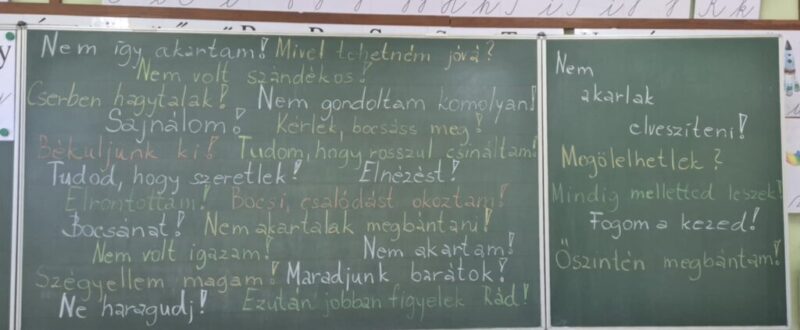 Nem így akartam! Mivel tehetném jóvá?
Nem volt szándékos!
Cserben hagytalak! Nem gondoltam komolyan!
Sajnálom! Kérlek, bocsáss meg!
Béküljunk ki! Tudom, hogy rosszul csináltam!
Tudod, hogy szeretlek! Elnézést!
Elrontottam! Bocsi, csalódást okoztam!
Bocsánat! Nem akartalak megbántani!
Nem volt igazam! Nem akartam!
Szégyellem magam! Maradjunk barátok!
Ne haragudj! Ezután jobban figyelek Rád!
Nem
akarlak
elveszíteni!
Megölelhetlek?
Mindig melletted leszek!
Fogom a kezed!
Őszintén megbántam!